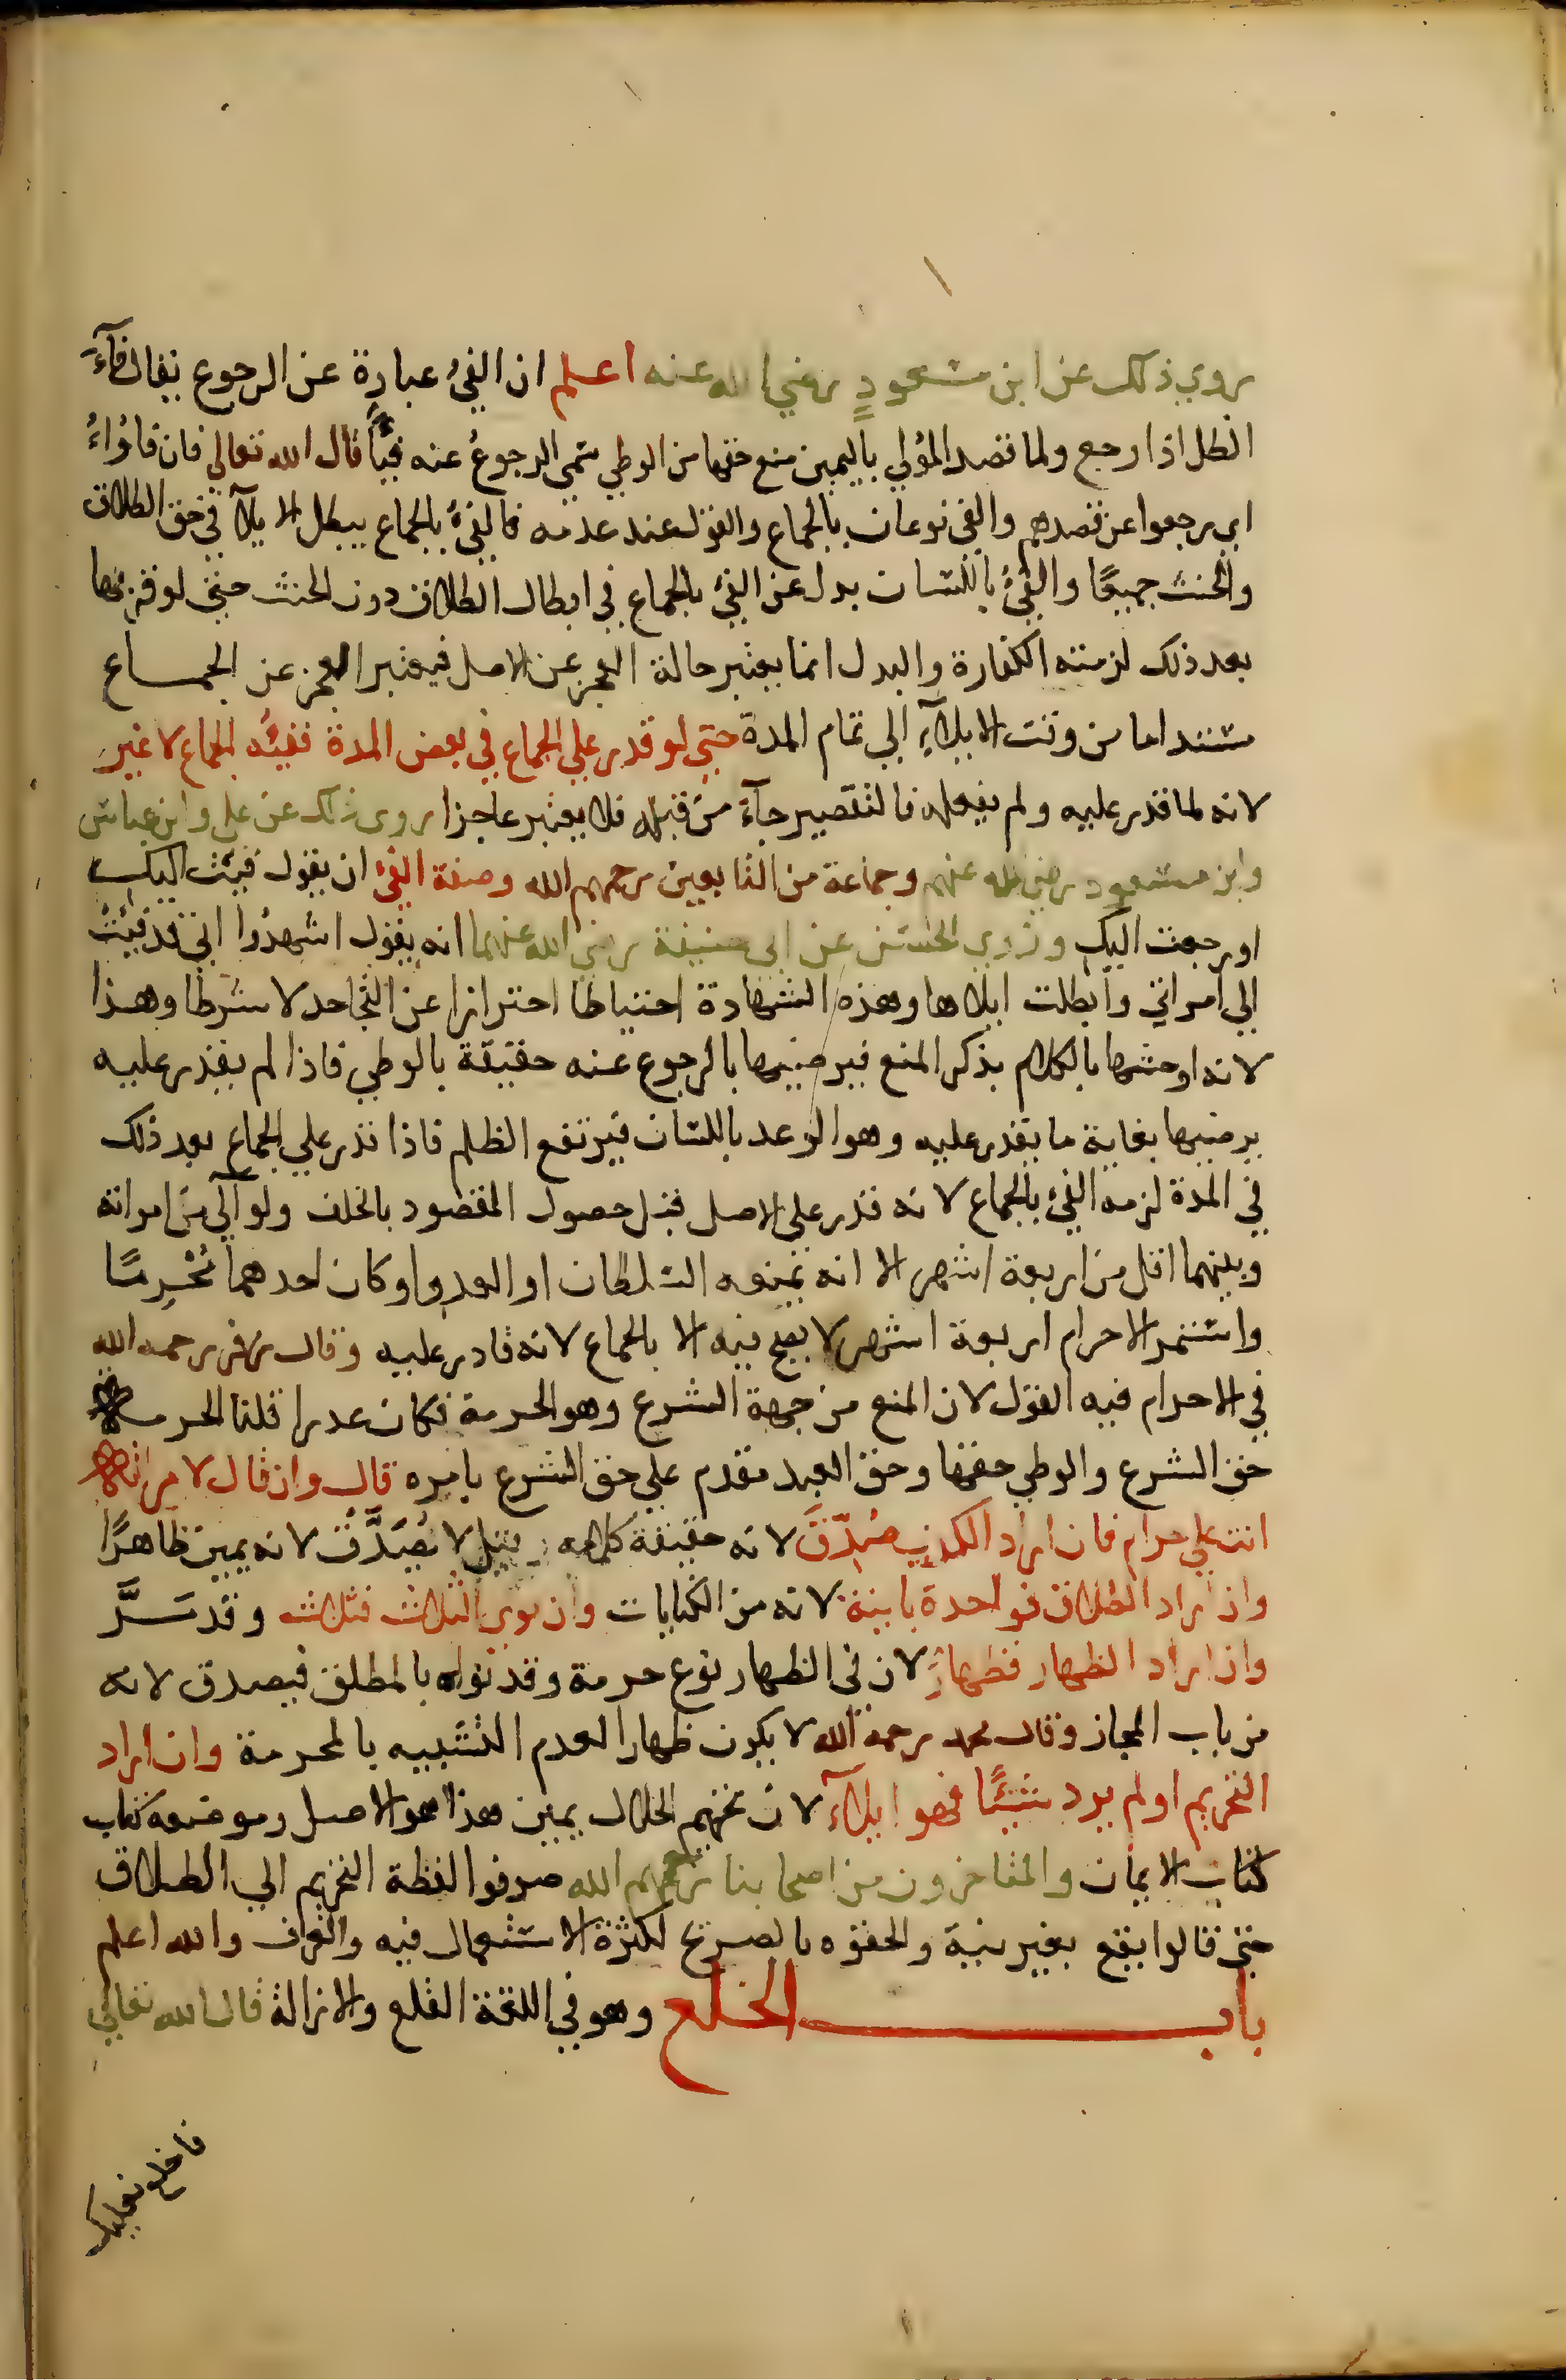 روي ذلك عن ابن مسعودٍ رضي الله عنه اعلم ان الفئ عبارة عن الرجوع يقال فآءَ
الظل اذا رجع ولما قصد المؤلي باليمين منع حقها من الوطي سمي الرجوعُ عنه فيًأ قال الله تعالي فان فاؤاءُ
اي رجعوا عن قصدهم والفئ نوعان بالجماع والقول عند عدمه فالفئُ بالجماع يبطل الايلآ في حق الطلاق
والحنث جميعًا والفئُ باللسان بدل عن الفئ بالجماع في ابطال الطلاق دون الحنث حتي لو قربها
بعد ذلك لزمته الكفارة والبدل انما يعتبر حالة العجز عن الاصل فيعتبر العجز عن الجماع
مستداما من وقت الايلآءِ الي تمام المدة حتي لو قدر علي الجماع في بعض المدة ففيئُه الجماع لا غير
لانه لما قدر عليه ولم يفعله فالتقصير جآءَ من قبله فلا يعتبر عاجزا روي ذلك عن علي وابن عباس
وابن مسعود رضي الله عنهم وجماعة من التابعين رحمهم الله وصفة الفئ ان يقول فيئت اليك
او رجعت اليك وروي الحسن عن ابي حنيفة رضي الله عنهما انه يقول اشهدُوا اني قد فيئتُ
الي امراتي وابطلت ايلاها وهذه الشهادة احتياطا احترازا عن التجاحد لا شرطا وهذا
لانه اوحشها بالكلام بذكر المنع فيرضيها بالرجوع عنه حقيقة بالوطي فاذا لم يقدر عليه
يرضيها بغاية ما يقدر عليه وهو الوعد باللسان فيرتفع الظلم فاذا قدر علي الجماع بعد ذلك
في المدة لزمه الفئ بالجماع لانه قدر علي الاصل قبل حصول المقصود بالخلف ولو آلي من امراته
وبينهما اقل من اربعة اشهر الا انه يمنعه السلطان او العدو او كان احدهما مُحْرِمًا
واستمر الاحرام اربعة اشهر لا يصح فيه الا بالجماع لانه قادر عليه وقال زفر رحمه الله
في الاحرام فيه القول لان المنع من جهة الشرع وهو الحرمة فكان عدرا قلنا الحرمة
حق الشرع والوطي حقها وحق العبد مقدم علي حق الشرع بامره قال وان قال لامراته
انت علي حرام فان اراد الكذب صُدِّقَ لانه حقيقة كلامه وقيل لا يُصَدَّقُ لانه يمين ظاهرًا
وان اراد الطلاق فواحدة باينة لانه من الكنايات وان نوي الثلاث فثلاث وقد مَرَّ
وان اراد الظهار فظهارٌ لان في الظهار نوع حرمة وقد نواه بالمطلق فيصدق لانه
من باب المجاز وقال محمد رحمه الله لا يكون ظهارا لعدم التشبيه بالمحرمة وان اراد
التحريم او لم يرد شيئًا فهو ايلآء لان تحريم الحلال يمين هذا هو الاصل وموضعه كتاب
كتاب الايمان والمتاخرون من اصحابنا رحمهم الله صرفوا لفظة التحريم الي الطلاق
حتي قالوا يقع بغير نية والحقوه بالصريح لكثرة الاستعمال فيه والعرف والله اعلم
باب الخلع وهو في اللغة القلع والازالة قال الله تعالي
فاخلع نعليك